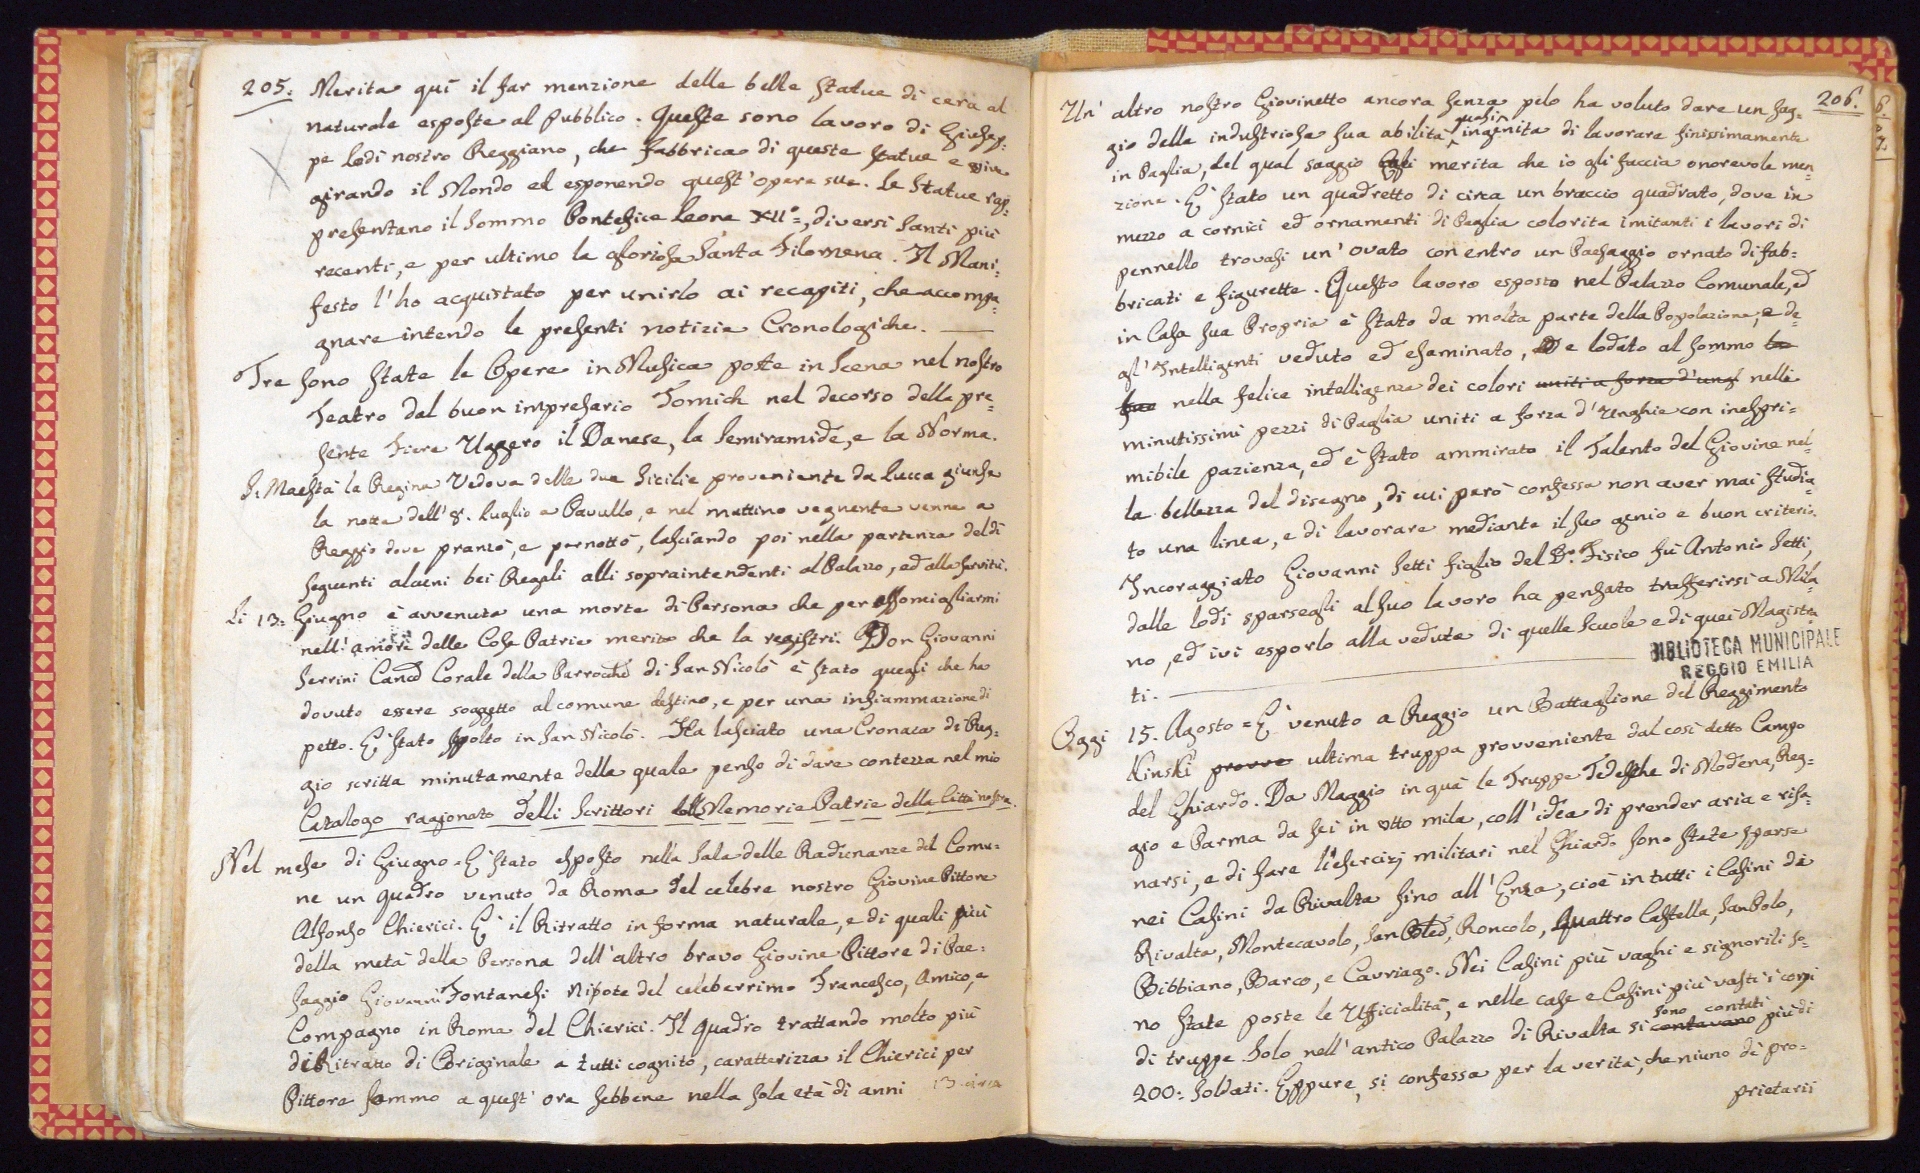 205. Merita quì il far menzione delle belle Statue di cera al
naturale esposte al Pubblico. Queste sono lavoro di Giusep=
pe Lodi nostro Reggiano, che fabbrica di queste Statue e vive
girando il Mondo ed esponendo quest' opere sue. Le Statue rap=
presentano il Sommo Pontefice Leone XII°=, diversi Santi più
recenti, e per ultimo la gloriosa Santa Filomena. Il Mani=
festo l'ho acquistato per unirlo ai recapiti, che accompa=
gnare intendo le presenti notizie Cronologiche.
Tre sono state le Opere in Musica poste in Scena nel nostro
Teatro dal buon impresario Tomich nel decorso della pre=
sente Fiera Uggero il Danese, la Semiramide, e la Norma.
S. Maestà la Regina Vedova delle due Sicilie proveniente da Lucca giunse
la notte dell' 8. Luglio a Pavullo, e nel mattino vegnente venne a
Reggio dove pranzò, e pernottò, lasciando poi nella partenza del dì
seguenti alcuni bei Regali alli sopraintendenti al Palazzo, ed alla servitù.
Li 13= Giugno è avvenuta una morte di Persona che per assomigliarmi
nell' amore delle Cose Patrie merita che la registri. Don Giovanni
Serrini Canco Corale della Parrocchia di San Nicolò è stato quegli che ha
dovuto essere soggetto al comune destino, e per una infiammazione di
petto. E' stato sepolto in San Nicolò. Ha lasciato una Cronaca di Reg=
gio scritta minutamente della quale penso di dare contezza nel mio
Catalogo ragionato delli Scrittori delle Memorie Patrie della Città nostra.
Nel mese di Giugno = E' stato esposto nella Sala delle Radunanze del Comu=
ne un quadro venuto da Roma del celebre nostro Giovine Pittore
Alfonso Chierici. E' il Ritratto in forma naturale, e di quali più
della metà della Persona dell' altro bravo Giovine Pittore di Pae=
saggio Giovanni Fontanesi Nipote del celeberrimo Francesco, Amico, e
Compagno in Roma del Chierici. Il quadro trattando molto più
di Ritratto di Originale a tutti cognito, caratterizza il Chierici per
Pittore sommo a quest' ora sebbene nella sola età di anni
206.
Un' altro nostro Giovinetto ancora senza pelo ha voluto dare un sag=
gio della industriosa sua abilità quasi ingenita di lavorare finissimamente
in Paglia, del qual saggio merita che io gli faccia onorevole men=
zione. E' stato un quadretto di circa un braccio quadrato, dove in
mezzo a cornici ed ornamenti di Paglia colorita imitanti i lavori di
pennello trovasi un' ovato con entro un Paesaggio ornato di fab=
bricati e figurette. Questo lavoro esposto nel Palazzo Comunale, ed
in Casa sua Propria è stato da molta parte della Popolazione, e de=
gl' Intelligenti veduto ed esaminato, e lodato al sommo
nella felice intelligenza dei colori uniti a forza d'ung nelli
minutissimi pezzi di Paglia uniti a forza d' Unghie con inespri=
mibile pazienza, ed è stato ammirato il Talento del Giovine nel=
la bellezza del disegno, di cui però confessa non aver mai studia=
to una linea, e di lavorare mediante il suo genio e buon criterio.
Incoraggiato Giovanni Setti figlio del Dr. Fisico fù Antonio Setti,
dalle lodi sparsegli al suo lavoro ha pensato trasferirsi a Mila=
no, ed ivi esporlo alla veduta di quelle Scuole e di quei Magistra
ti.
BIBLIOTECA MUNICIPALE
REGGIO EMILIA
Oggi 15. Agosto = E' venuto a Reggio un Battaglione del Reggimento
Kinski provve ultima truppa provveniente dal così detto Campo
del Ghiardo. Da Maggio in quà le Truppe Tedesche di Modena, Reg=
gio e Parma da sei in otto mila, coll' idea di prender aria e risa=
narsi, e di fare li esercizj militari nel Ghiardo sono state sparse
nei Casini da Rivalta fino all' Enza, cioè in tutti i Casini di
Rivalta, Montecavolo, San Polo, Roncolo, Quattro Castella, San Polo,
Bibbiano, Barco, e Cavriago. Nei Casini più vaghi e signorili so=
no state poste le Ufficialità, e nelle case e Casini più vasti i corpi
di truppe. Solo nell' antico Palazzo di Rivalta si contavano sono contati più di
200= Soldati. Eppure, si confessa per la verità, che niuno di pro=
prietarii